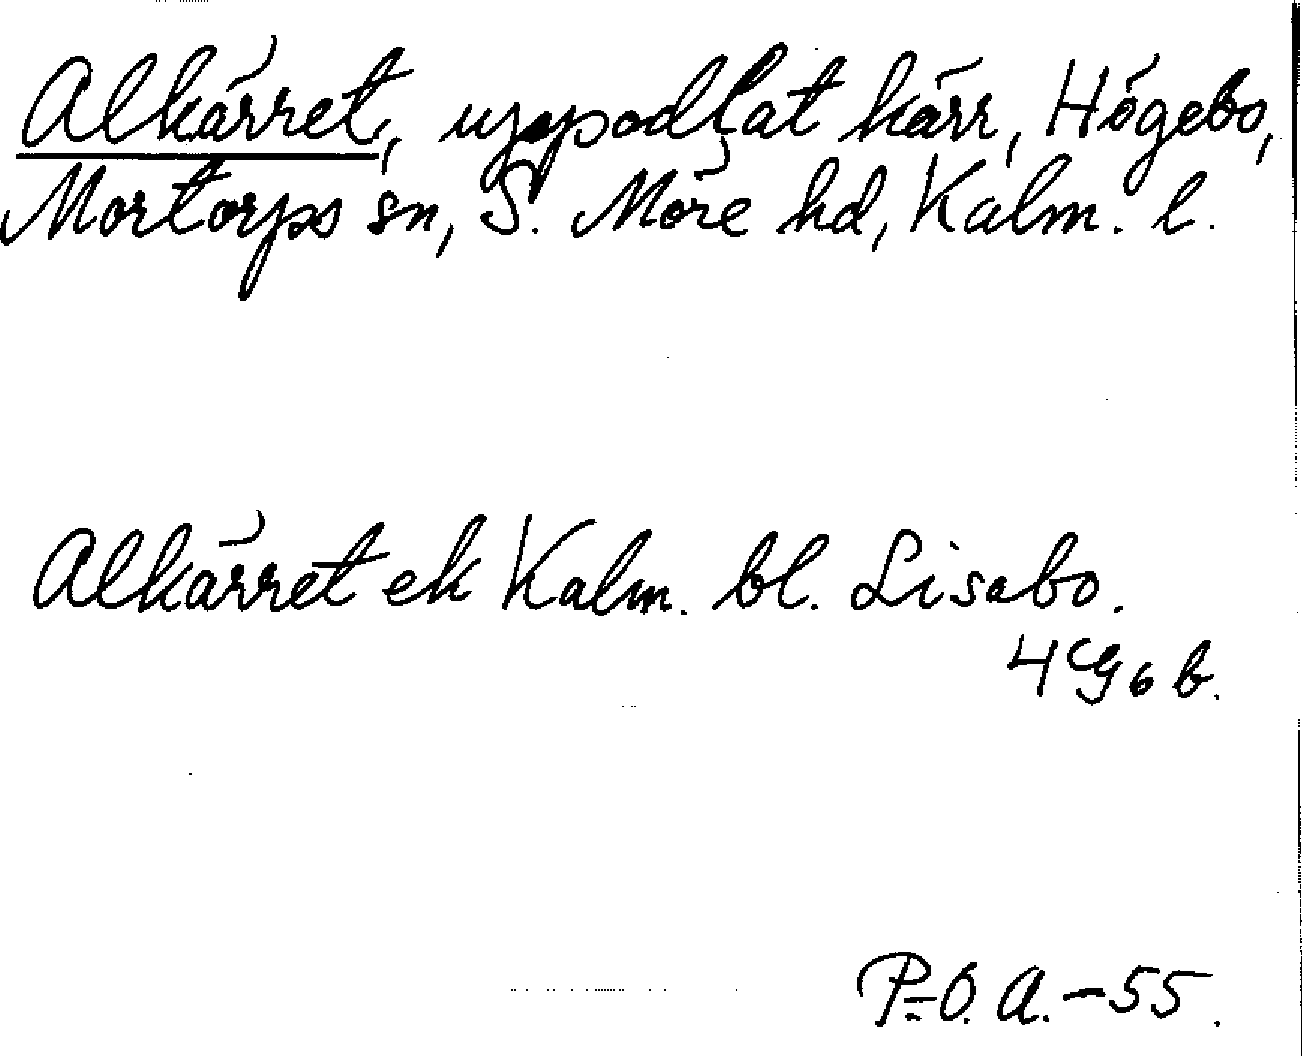 Alkärret, uppodlat kärr, Högebo,
Mortorps sn, S. Möre hd, Kalm. l.
Alkärret ek Kalm. bl. Lisabo.
4 G 6 b.
P-O. A. -55.